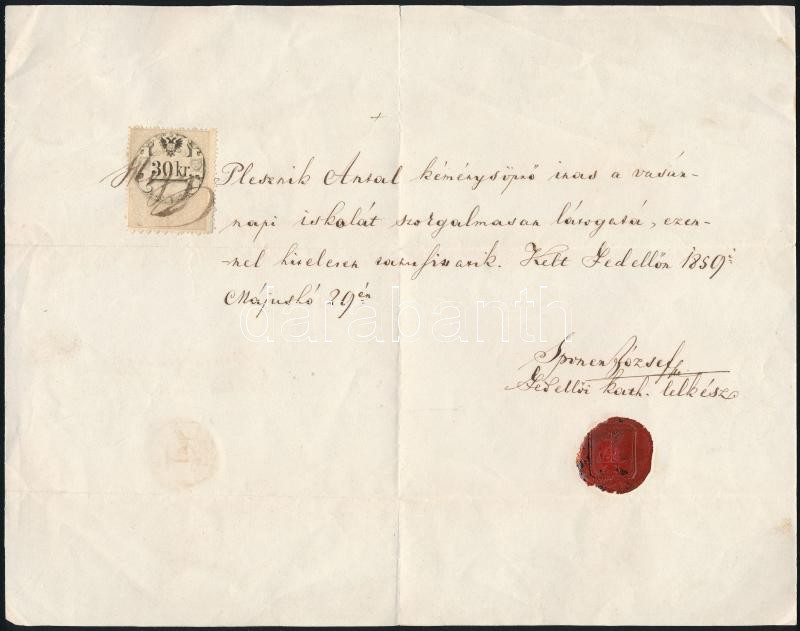 30 kr.
Plesznik Antal kéménysöprő inas a vasár-
napi iskolát szorgalmasan látogatá, ezen-
-nel hitelesen tanusittatik. Kelt Jedellőn 1859i
Májushó 29én
József
Jedellői kath. lelkész
darabanth